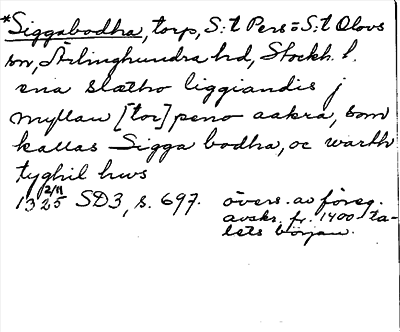 *Siggabodha, torp, S:t Pers = S:t Olovs
sn, Ärlinghundra hd, Stockh. l.
ena slætho liggiandis j
myllan [tor]peno aakra, som
kallas Sigga bodha, oc warth
tyghil hws
2/11
1325 SD3, s. 697. övers. av föreg.
avskr. fr. 1400-ta-
lets början.